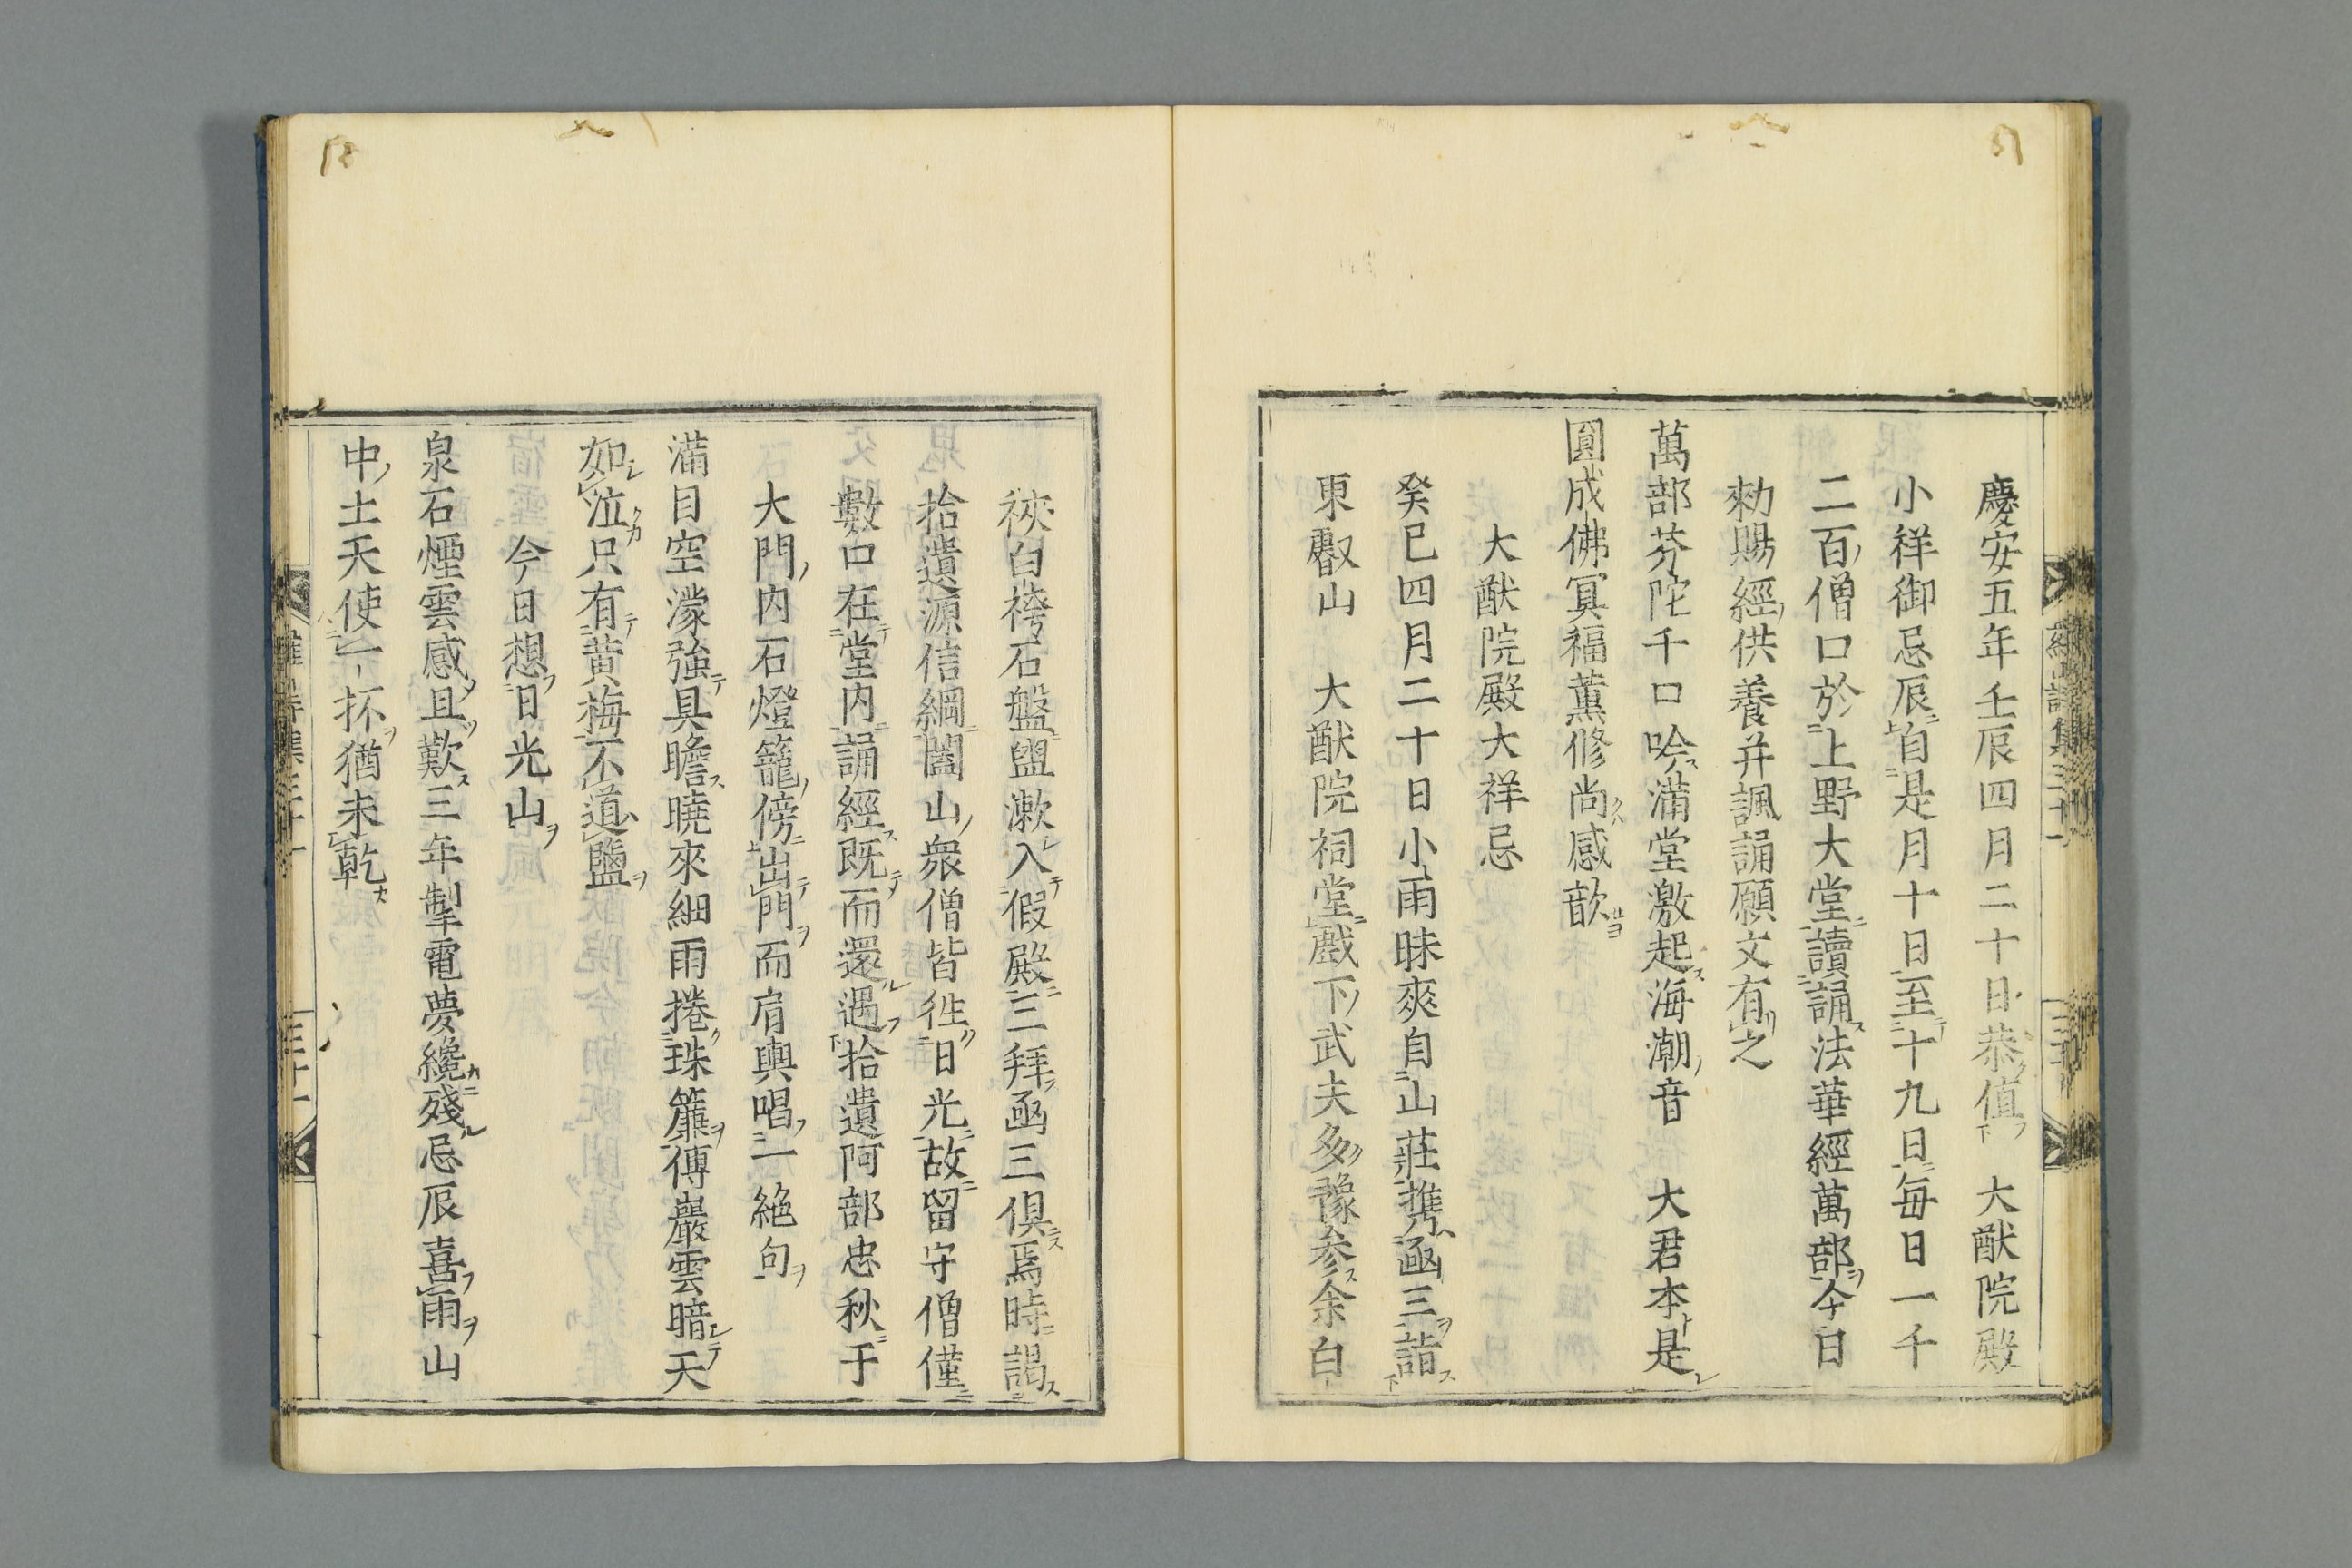 慶安五年壬辰四月二十日恭値 大猷院殿
小祥御忌辰自是月十日至十九日每日一千
二百僧口於上野大堂讀誦法華經萬部今日
勑賜經供養并諷誦願文有之
萬部芬陀千口吟滿堂激起海潮音 大君本是
圓成佛冥福薰修尚感歆
大猷院殿大祥忌
癸巳四月二十日小雨昧爽自山莊携凾三詣
東叡山 大猷院祠堂戲下武夫多豫參余白
裌白袴石盤盥漱入假殿三拜凾三俱焉時謁
拾遺源信綱闔山衆僧皆徃日光故留守僧僅
數口在堂内誦經既而還遇拾遺阿部忠秋于
大門内石燈籠傍出門而肩輿唱一絶句
滿目空濛強具瞻曉來細雨捲珠簾傅巖雲暗天
如泣只有黄梅不道鹽
今日想日光山
泉石煙雲感且歎三年掣電夢纔殘忌辰喜雨山
中土天使一抔猶未乾